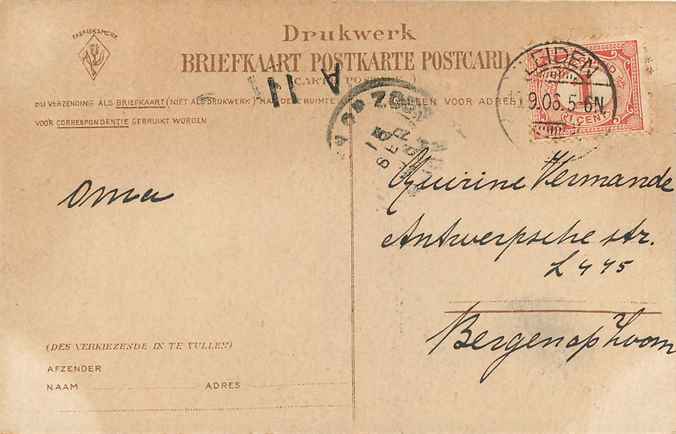 FABRIEKSMERK
Drukwerk
BRIEFKAART POSTKARTE POSTCARD
LEIDEN
9.06.5-6N
1 CENT
A 11
BIJ VERZENDING ALS BRIEFKAART (NIET ALS DRUKWERK) KAN DE RUIMTE
VOOR ADRES
VOOR CORRESPONDENTIE GEBRUIKT WORDEN
OP ZO
Oma
Quirine Vermande
Antwerpsche str.
L 445
Bergen op Zoom
(DES VERKIEZENDE IN TE VULLEN)
AFZENDER
NAAM ADRES